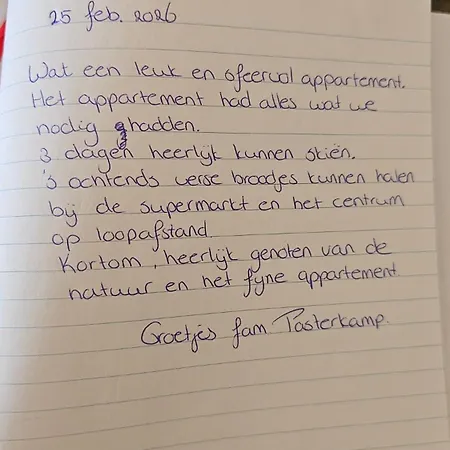 25 feb. 2026
Wat een leuk en sfeervol appartement.
Het appartement had alles wat we
nodig hadden.
3 dagen heerlijk kunnen skiën.
's ochtends verse broodjes kunnen halen
bij de supermarkt en het centrum
op loopafstand
Kortom, heerlijk genoten van de
natuur en het fijne appartement
Groetjes fam Pasterkamp.